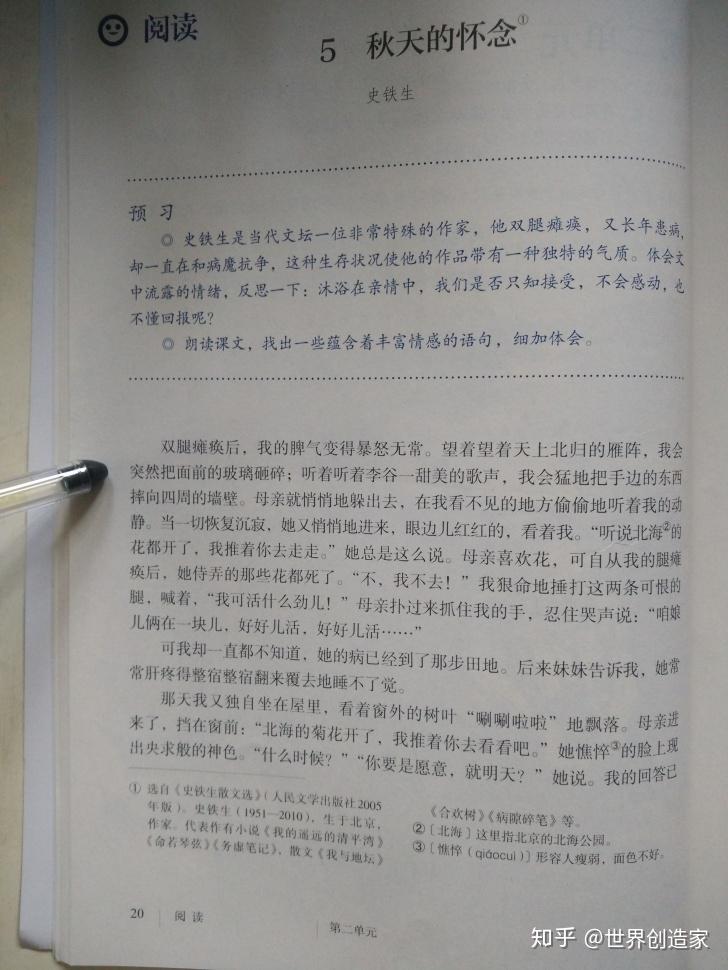 阅读
5 秋天的怀念①
史铁生
预 习
◎ 史铁生是当代文坛一位非常特殊的作家，他双腿瘫痪，又长年患病，
却一直在和病魔抗争，这种生存状况使他的作品带有一种独特的气质。体会文
中流露的情绪，反思一下：沐浴在亲情中，我们是否只知接受，不会感动，也
不懂回报呢？
◎ 朗读课文，找出一些蕴含着丰富情感的语句，细加体会。
双腿瘫痪后，我的脾气变得暴怒无常。望着望着天上北归的雁阵，我会
突然把面前的玻璃砸碎；听着听着李谷一甜美的歌声，我会猛地把手边的东西
摔向四周的墙壁。母亲就悄悄地躲出去，在我看不见的地方偷偷地听着我的动
静。当一切恢复沉寂，她又悄悄地进来，眼边儿红红的，看着我。“听说北海②的
花都开了，我推着你去走走。”她总是这么说。母亲喜欢花，可自从我的腿瘫
痪后，她侍弄的那些花都死了。“不，我不去！”我狠命地捶打这两条可恨的
腿，喊着，“我可活什么劲儿！”母亲扑过来抓住我的手，忍住哭声说：“咱娘
儿俩在一块儿，好好儿活，好好儿活……”
可我却一直都不知道，她的病已经到了那步田地。后来妹妹告诉我，她常
常肝疼得整宿整宿翻来覆去地睡不了觉。
那天我又独自坐在屋里，看着窗外的树叶“唰唰啦啦”地飘落。母亲进
来了，挡在窗前：“北海的菊花开了，我推着你去看看吧。”她憔悴③的脸上现
出央求般的神色。“什么时候？”“你要是愿意，就明天？”她说。我的回答已
① 选自《史铁生散文选》（人民文学出版社2005
年版）。史铁生（1951—2010），生于北京，
作家。代表作有小说《我的遥远的清平湾》
《命若琴弦》《务虚笔记》，散文《我与地坛》
《合欢树》《病隙碎笔》等。
②〔北海〕这里指北京的北海公园。
③〔憔悴（qiáocuì）〕形容人瘦弱，面色不好。
20 阅读
第二单元
知乎 @世界创造家